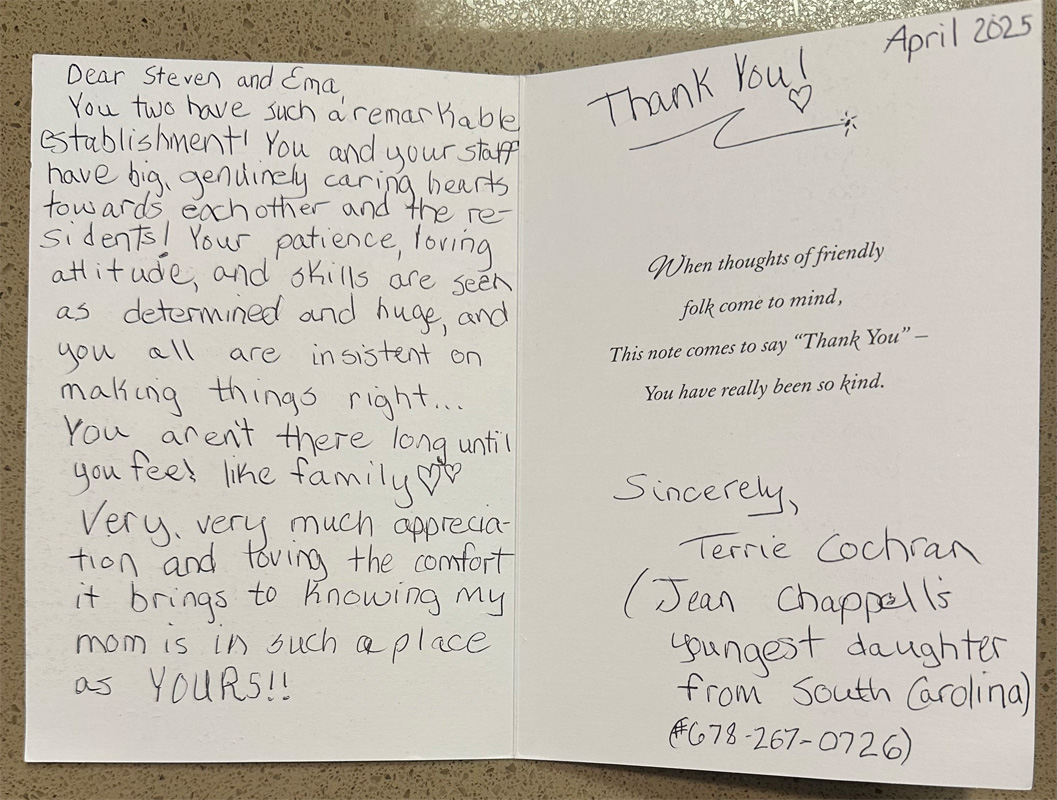 Dear Steven and Ema,
You two have such a remarkable
establishment! You and your staff
have big, genuinely caring hearts
towards each other and the re-
sidents! Your patience, loving
attitude, and skills are seen
as determined and huge, and
you all are insistent on
making things right...
You aren't there long until
you feel like family ♡♡
Very, very much apprecia-
tion and loving the comfort
it brings to knowing my
mom is in such a place
as YOURS!!
April 2025
Thank You! ♡
When thoughts of friendly
folk come to mind,
This note comes to say “Thank You” –
You have really been so kind.
Sincerely,
Terrie Cochran
(Jean Chappell's
youngest daughter
from South Carolina)
(#678-267-0726)